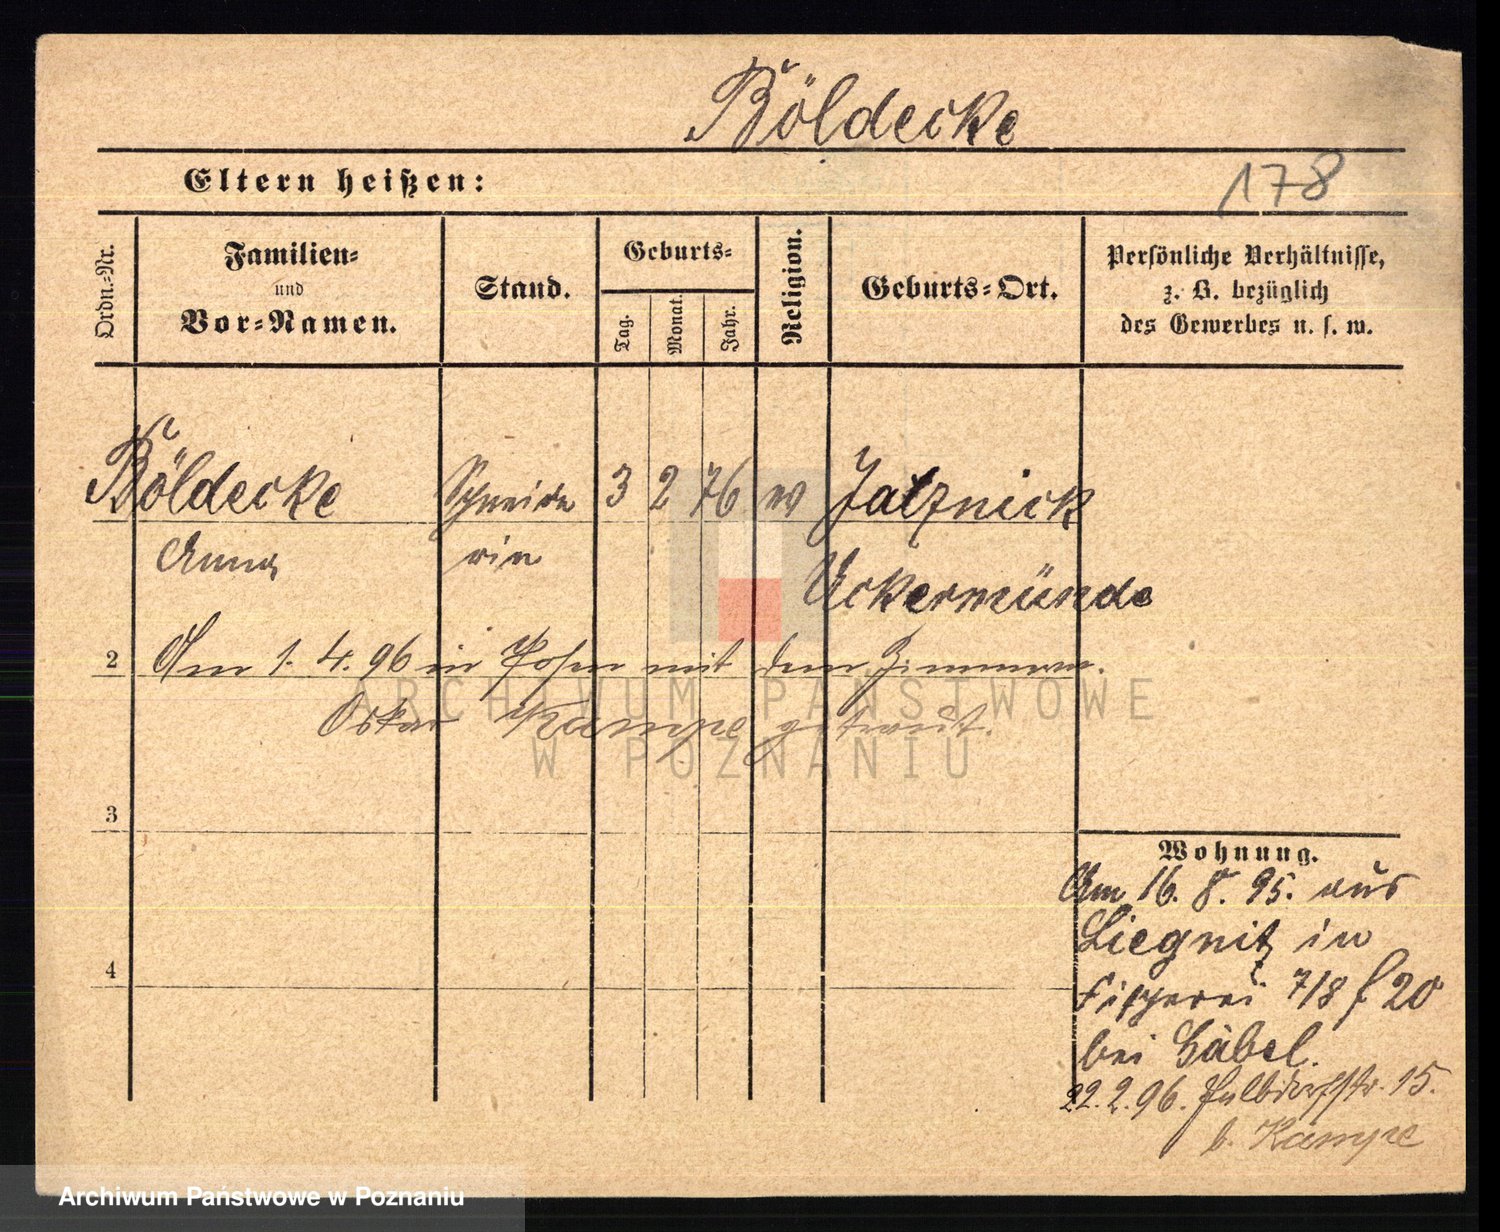 Böldecke
Eltern heißen:
178
Ordn.-Nr.
Familien-
und
Vor-Namen.
Stand.
Geburts-
Tag.
Monat.
Jahr.
Religion.
Geburts-Ort.
Persönliche Verhältnisse,
z. B. bezüglich
des Gewerbes u. s. w.
Böldecke Schneide 3 2 76 ev Jatznick
Anna rin Uckermünde
2 Am 1. 4. 96 in Posen mit dem Zimmerm.
Oskar Kampe getraut.
ARCHIWUM PAŃSTWOWE
W POZNANIU
3
Wohnung.
Am 16. 8. 95. aus
Liegnitz in
4
Fischerei 7/8 f 20
bei Gäbel.
22.2.96. 15.
b. Kampe
Archiwum Państwowe w Poznaniu